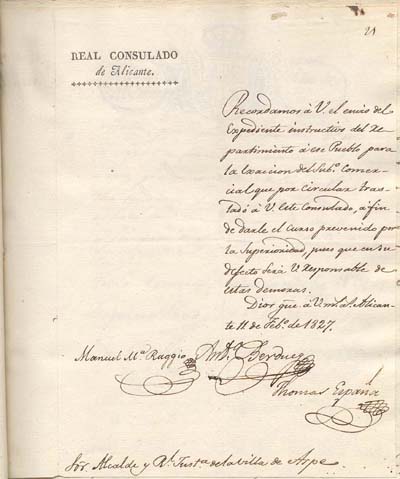 21
REAL CONSULADO
de Alicante.
Recordamos á V. el envio del
Expediente instructivo del Re-
partimiento á ese Pueblo para
la exaccion del Sub.º Comer-
cial que por circular tras-
ladó á V. este Consulado, á fin
de darle el curso prevenido por
la Superioridad, pues que en su
defecto será V. responsable de
estas demoras.
Dios gue. á V. ms. as. Alican-
te 11 de Feb.º de 1827.
Manuel M.ª Raggio Ant.º Berdueg
Thomas España
Sor. Alcalde y Rl. Just.a de la Villa de Aspe.